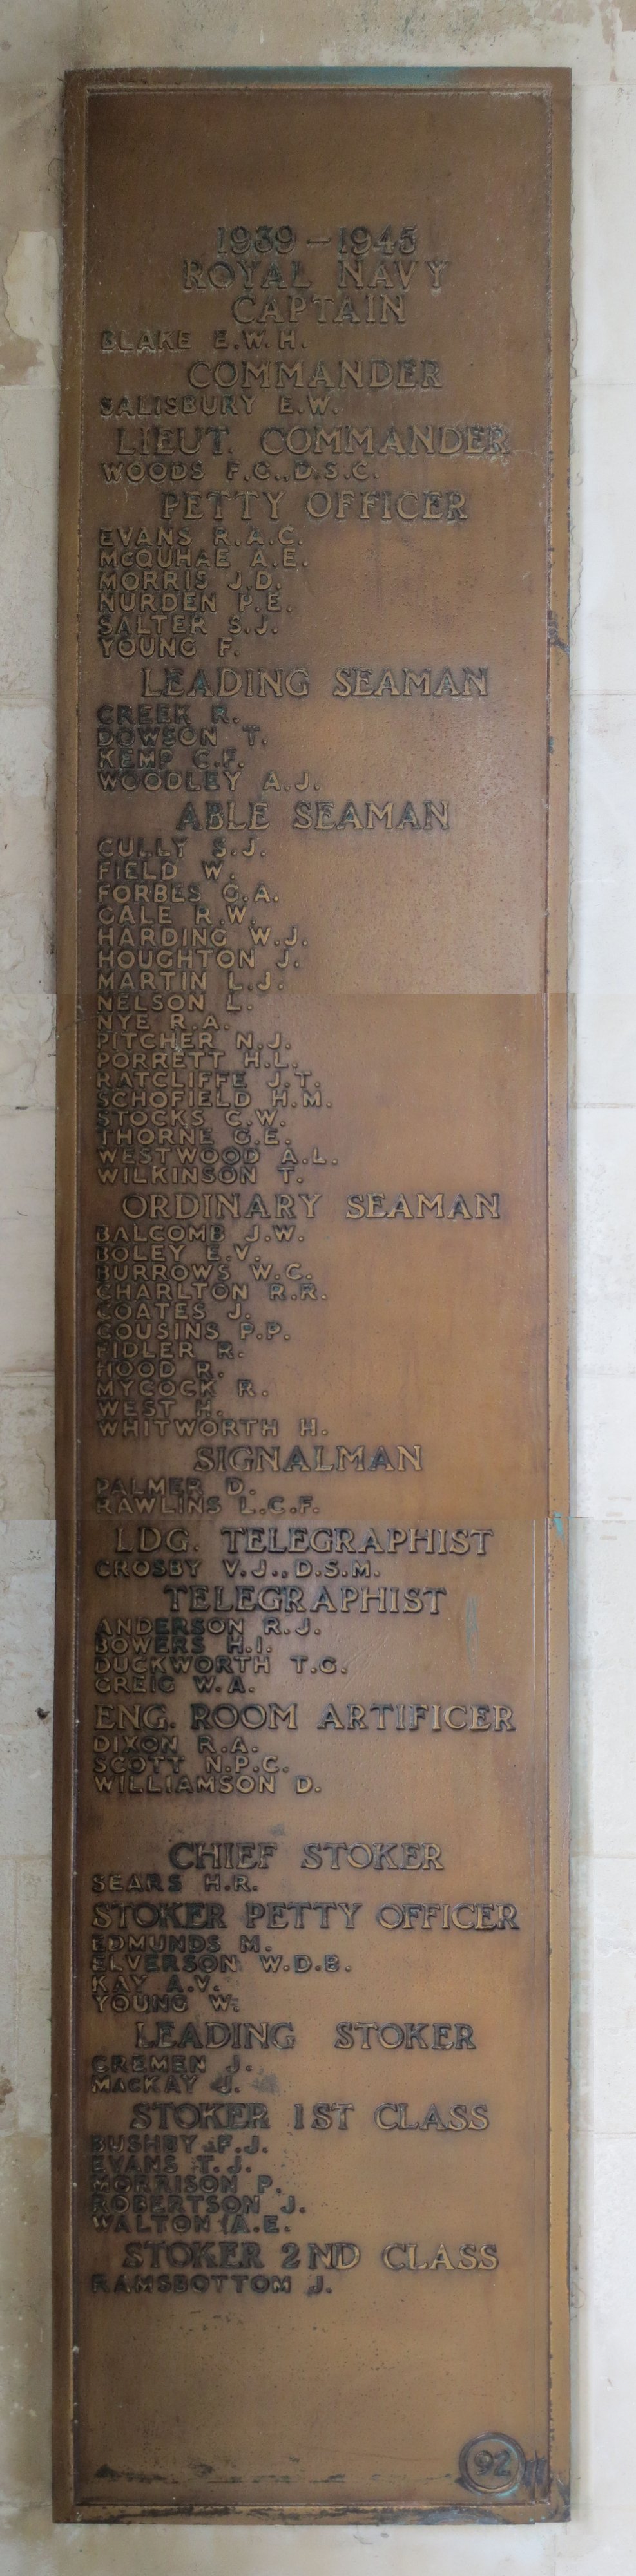 1939–1945
ROYAL NAVY
CAPTAIN
BLAKE E.W.H.
COMMANDER
SALISBURY E.W.
LIEUT. COMMANDER
WOODS F.G., D.S.C.
PETTY OFFICER
EVANS R.A.C.
McQUHAE A.E.
MORRIS J.D.
NURDEN P.E.
SALTER S.J.
YOUNG F.
LEADING SEAMAN
CREEK R.
DOWSON T.
KEMP C.F.
WOODLEY A.J.
ABLE SEAMAN
CULLY S.J.
FIELD W.
FORBES G.A.
GALE R.W.
HARDING W.J.
HOUGHTON J.
MARTIN L.J.
NELSON L.
NYE R.A.
PITCHER N.J.
PORRETT H.L.
RATCLIFFE J.T.
SCHOFIELD H.M.
STOCKS C.W.
THORNE G.E.
WESTWOOD A.L.
WILKINSON T.
ORDINARY SEAMAN
BALCOMB J.W.
BOLEY E.V.
BURROWS W.C.
CHARLTON R.R.
COATES J.
COUSINS P.P.
FIDLER R.
HOOD R.
MYCOCK R.
WEST H.
WHITWORTH H.
SIGNALMAN
PALMER D.
RAWLINS L.C.F.
LDG. TELEGRAPHIST
CROSBY V.J., D.S.M.
TELEGRAPHIST
ANDERSON R.J.
BOWERS H.I.
DUCKWORTH T.G.
GREIG W.A.
ENG. ROOM ARTIFICER
DIXON R.A.
SCOTT N.P.C.
WILLIAMSON D.
CHIEF STOKER
SEARS H.R.
STOKER PETTY OFFICER
EDMUNDS M.
ELVERSON W.D.B.
KAY A.V.
YOUNG W.
LEADING STOKER
CREMEN J.
MacKAY J.
STOKER 1ST CLASS
BUSHBY F.J.
EVANS T.J.
MORRISON P.
ROBERTSON J.
WALTON A.E.
STOKER 2ND CLASS
RAMSBOTTOM J.
92